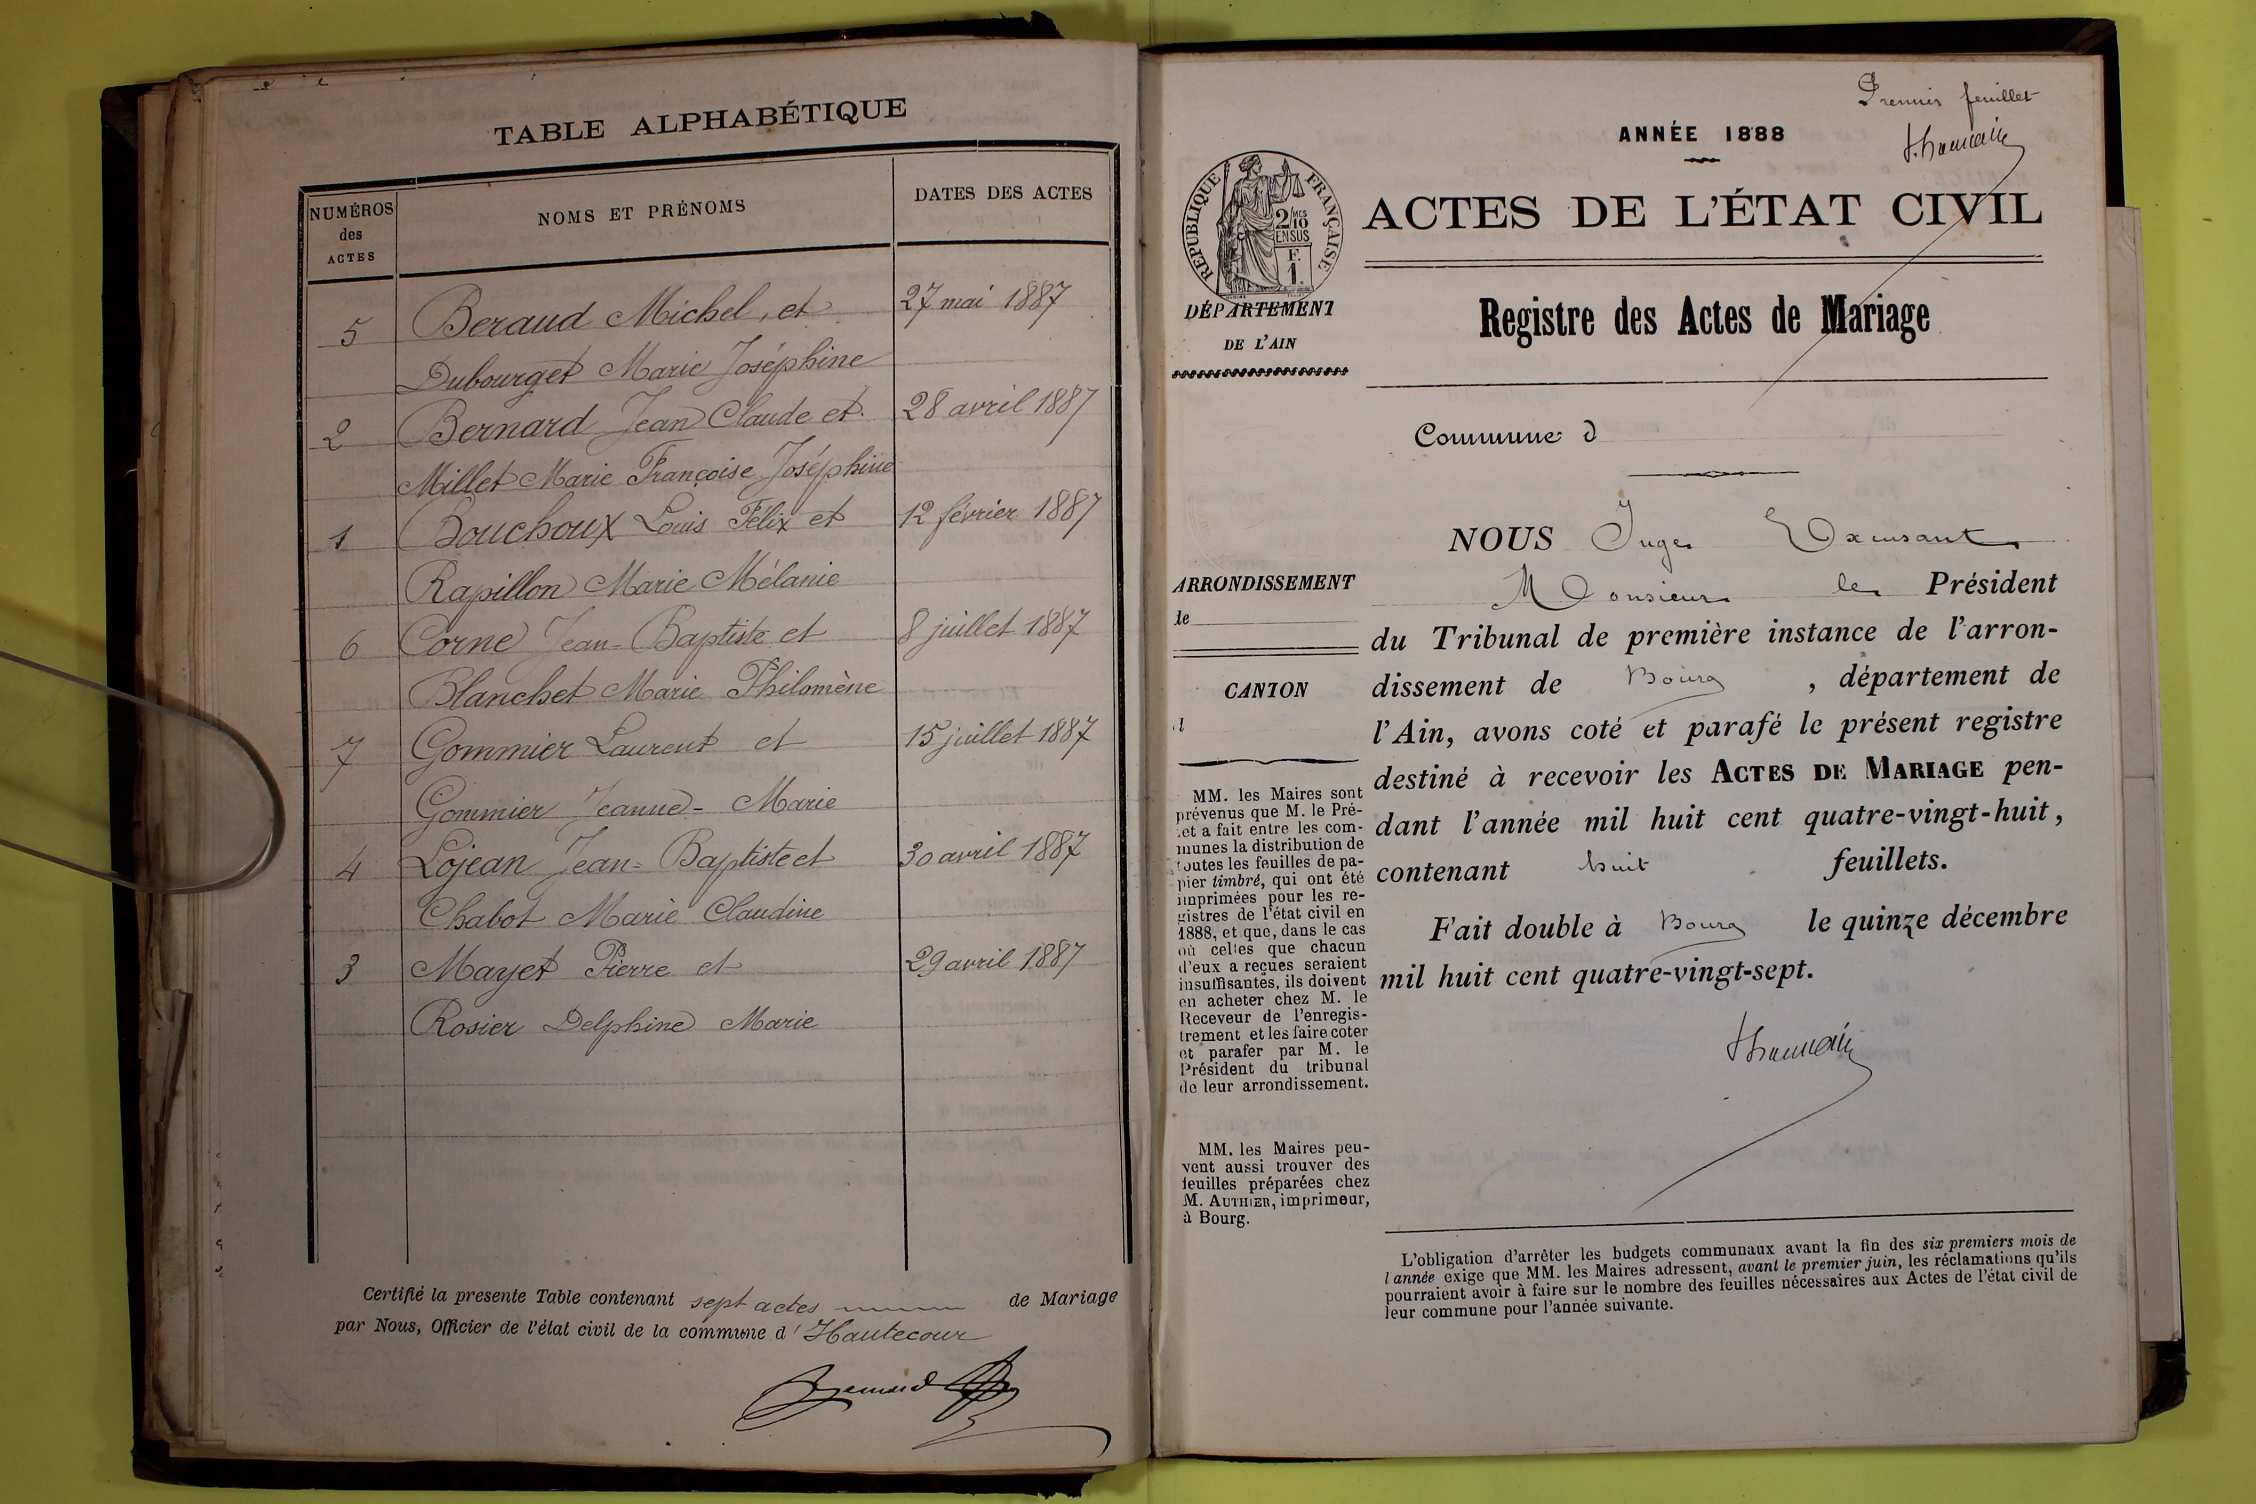 TABLE ALPHABÉTIQUE
NUMÉROS
des
ACTES
NOMS ET PRÉNOMS
DATES DES ACTES
5 Beraud Michel, et 27 mai 1887
Dubourget Marie Joséphine
2 Bernard Jean Claude et 28 avril 1887
Millet Marie Françoise Joséphine
1 Bouchoux Louis Félix et 12 février 1887
Rapillon Marie Mélanie
6 Corne Jean-Baptiste et 8 juillet 1887
Blanchet Marie Philomène
7 Gommier Laurent et 15 juillet 1887
Gommier Jeanne-Marie
4 Lojean Jean-Baptiste et 30 avril 1887
Chabot Marie Claudine
3 Mayet Pierre et 29 avril 1887
Rosier Delphine Marie
Certifié la presente Table contenant sept actes de Mariage
par Nous, Officier de l'état civil de la commune d'Hautecour
Bernard
Premier feuillet
ANNÉE 1888
RÉPUBLIQUE FRANÇAISE
2/10
MES
EN SUS
F.
1.
DÉPARTEMENT
DE L'AIN
ACTES DE L'ÉTAT CIVIL
Registre des Actes de Mariage
Commune d
NOUS Juge
Monsieur le Président
du Tribunal de première instance de l'arron-
dissement de Bourg, département de
l'Ain, avons coté et parafé le présent registre
destiné à recevoir les ACTES DE MARIAGE pen-
dant l'année mil huit cent quatre-vingt-huit,
contenant huit feuillets.
Fait double à Bourg le quinze décembre
mil huit cent quatre-vingt-sept.
ARRONDISSEMENT
de
CANTON
d
MM. les Maires sont
prévenus que M. le Pré-
fet a fait entre les com-
munes la distribution de
toutes les feuilles de pa-
pier timbré, qui ont été
imprimées pour les re-
gistres de l'état civil en
1888, et que, dans le cas
où celles que chacun
d'eux a reçues seraient
insuffisantes, ils doivent
en acheter chez M. le
Receveur de l'enregis-
trement et les faire coter
et parafer par M. le
Président du tribunal
de leur arrondissement.
MM. les Maires peu-
vent aussi trouver des
feuilles préparées chez
M. AUTHIER, imprimeur,
à Bourg.
L'obligation d'arrêter les budgets communaux avant la fin des six premiers mois de
l'année exige que MM. les Maires adressent, avant le premier juin, les réclamations qu'ils
pourraient avoir à faire sur le nombre des feuilles nécessaires aux Actes de l'état civil de
leur commune pour l'année suivante.